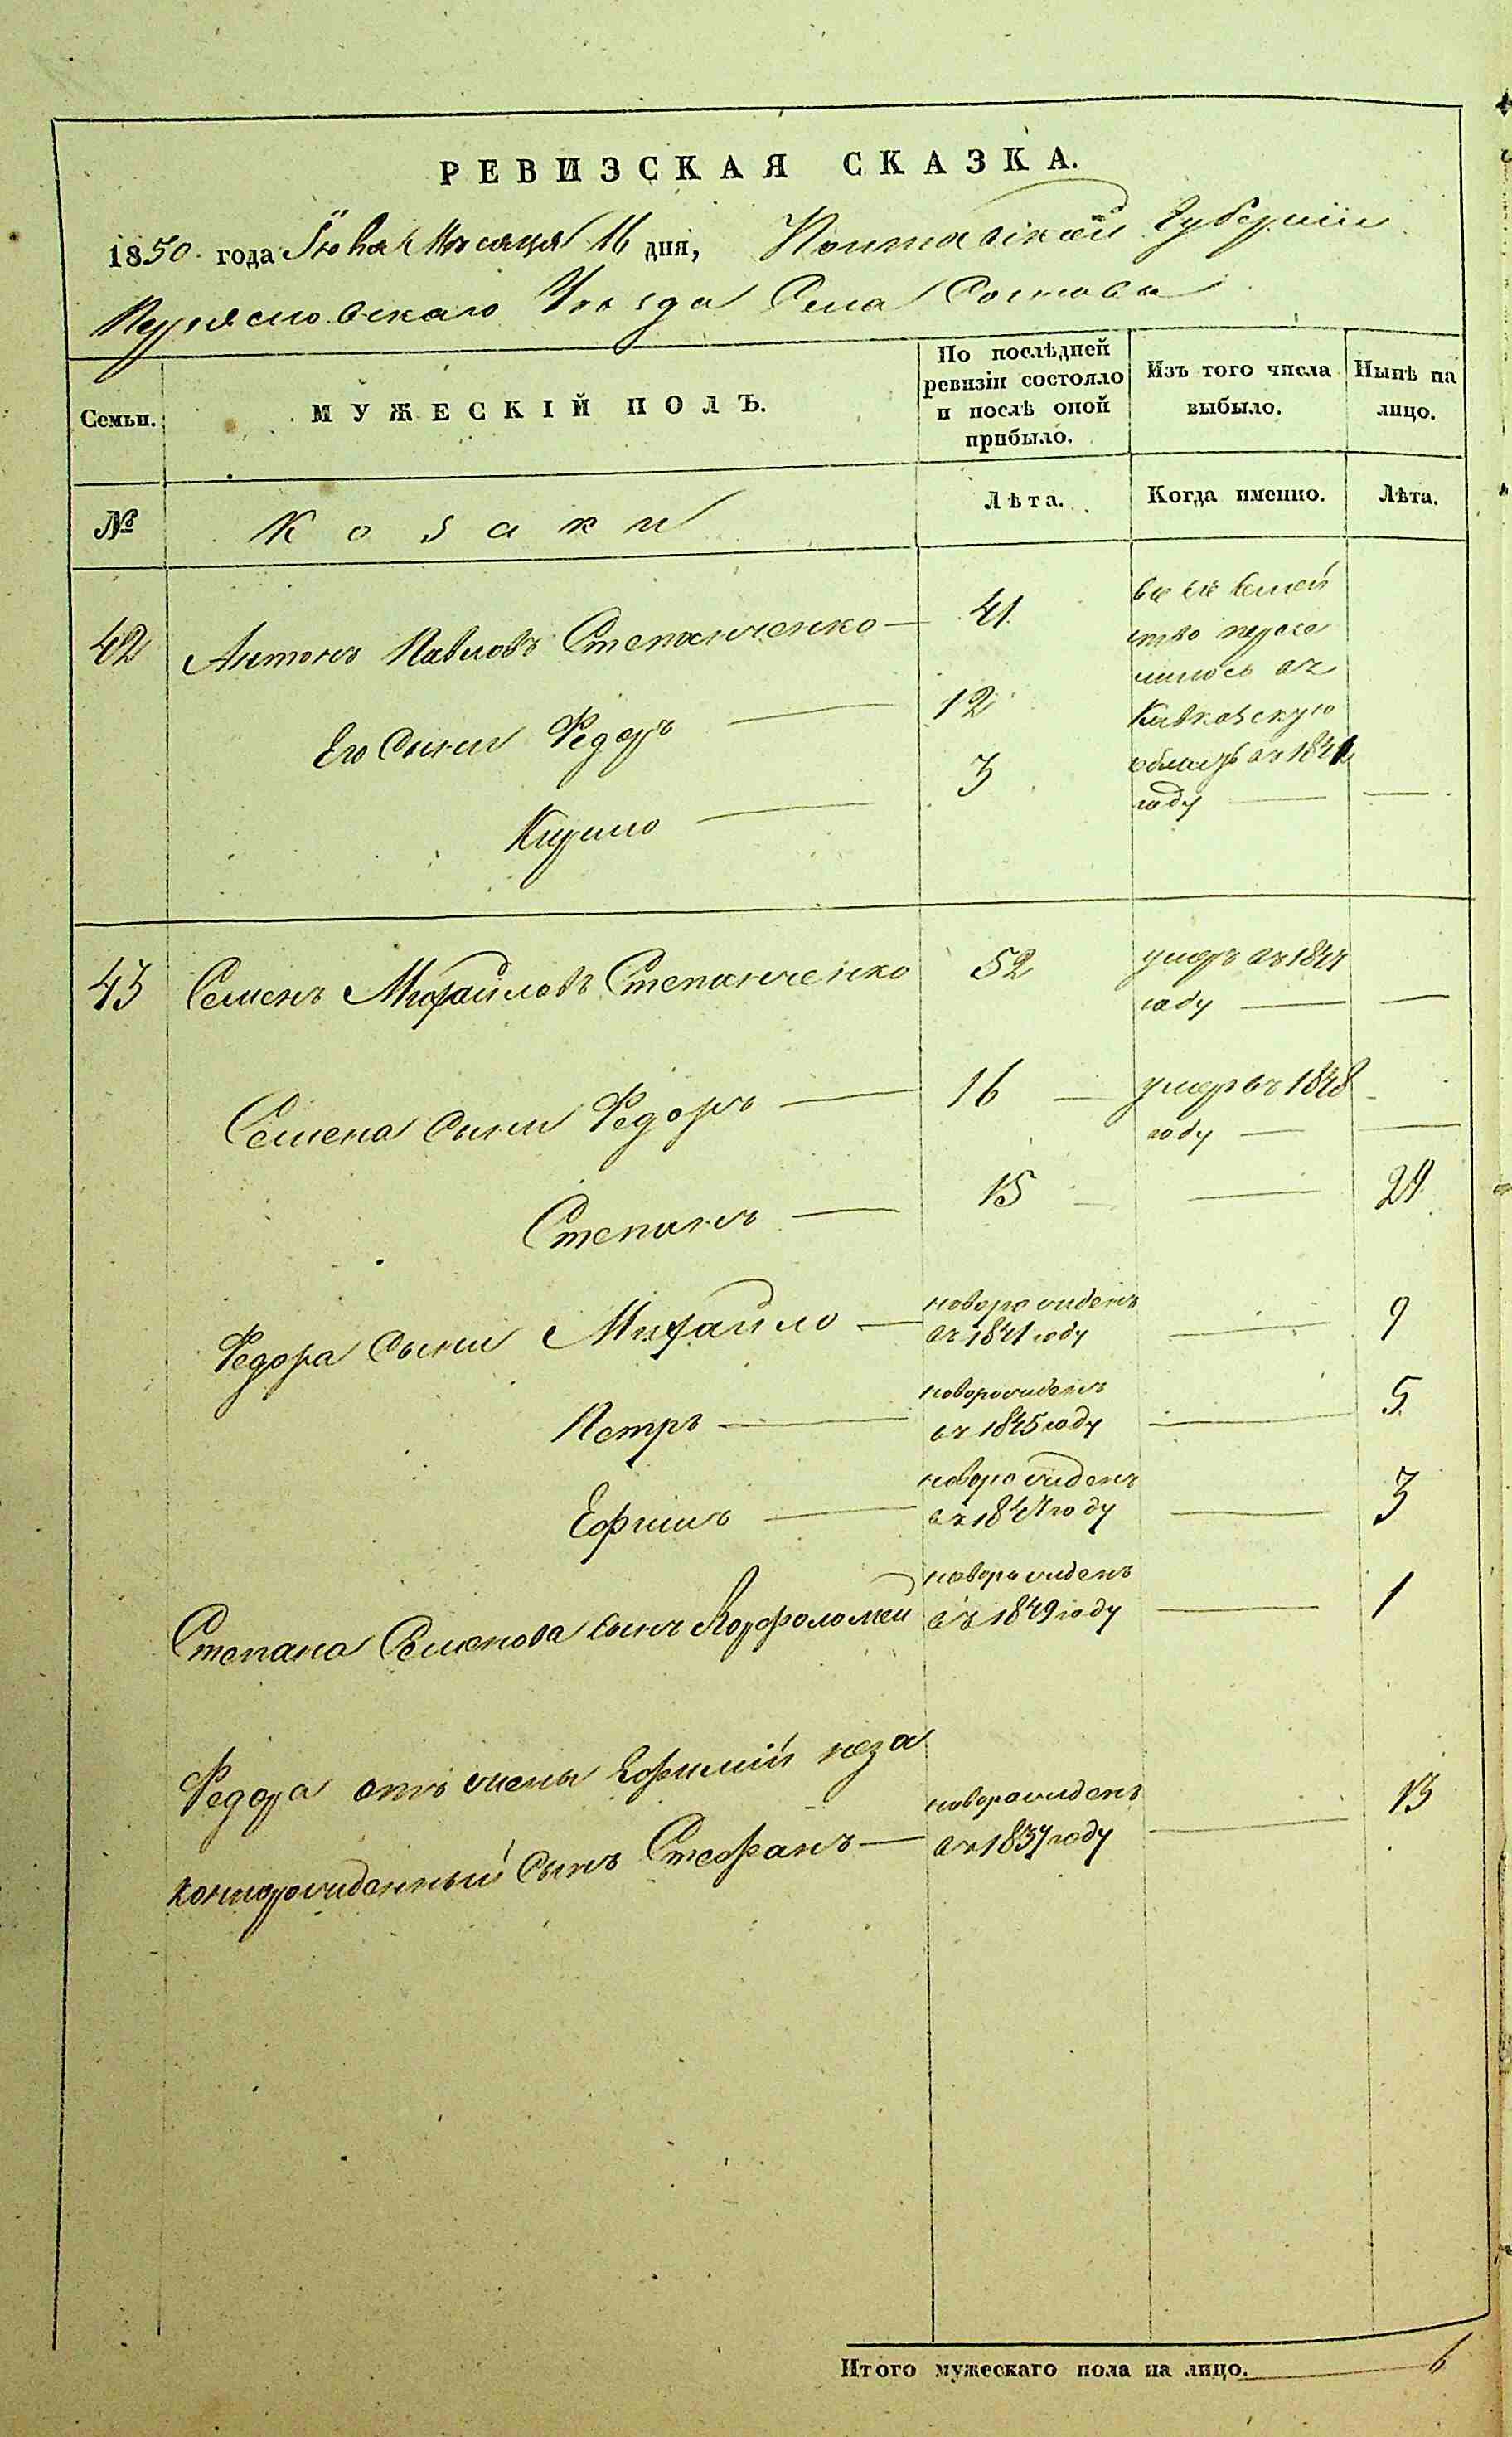 РЕВИЗСКАЯ СКАЗКА.
1850. года Іюня Мѣсяца 16 дня, Полтавской Губерніи
Переясловскаго Уѣзда Села Состова
Семьи.
МУЖЕСКІЙ ПОЛЪ.
По послѣдней
ревизіи состояло
и послѣ оной
прибыло.
Изъ того числа
выбыло.
Нынѣ на
лицо.
№
Козаки
Лѣта.
Когда именно.
Лѣта.
42 Антонъ Павловъ Степанченко — 41
все сіе семей
ство пересе
лилось въ
Кавказскую
область въ 184
году — —
Его сыни Федоръ — 12
Кирило — 3
43 Семенъ Михайловъ Степанченко 52 умеръ въ 1844
году — —
Семена сыни Федоръ — 16 — умеръ въ 1848
году — —
Степанъ — 15 — 29
Федора сыни Михайло — новорожденъ
въ 1841 году — 9
Петръ — новорожденъ
въ 1845 году — 5
Ефимъ — новорожденъ
въ 1847 году — 3
Степана Семенова сынъ Ворфоломей новорожденъ
въ 1849 году — 1
Федора отъ жены Ефиміи неза
коннорожденный сынъ Стефанъ — новорожденъ
въ 1837 году — 13
Итого мужескаго пола на лицо. — 6